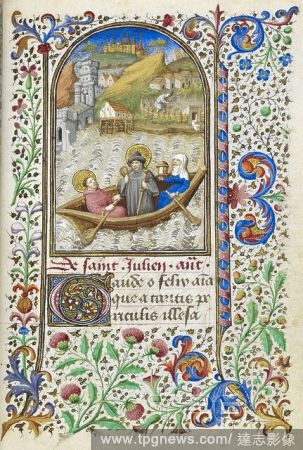 De saint Julien. añt.
Gaude o felix aīa
que a tantis pe
riculis illesa
www.tpgnews.com/ 達志影像